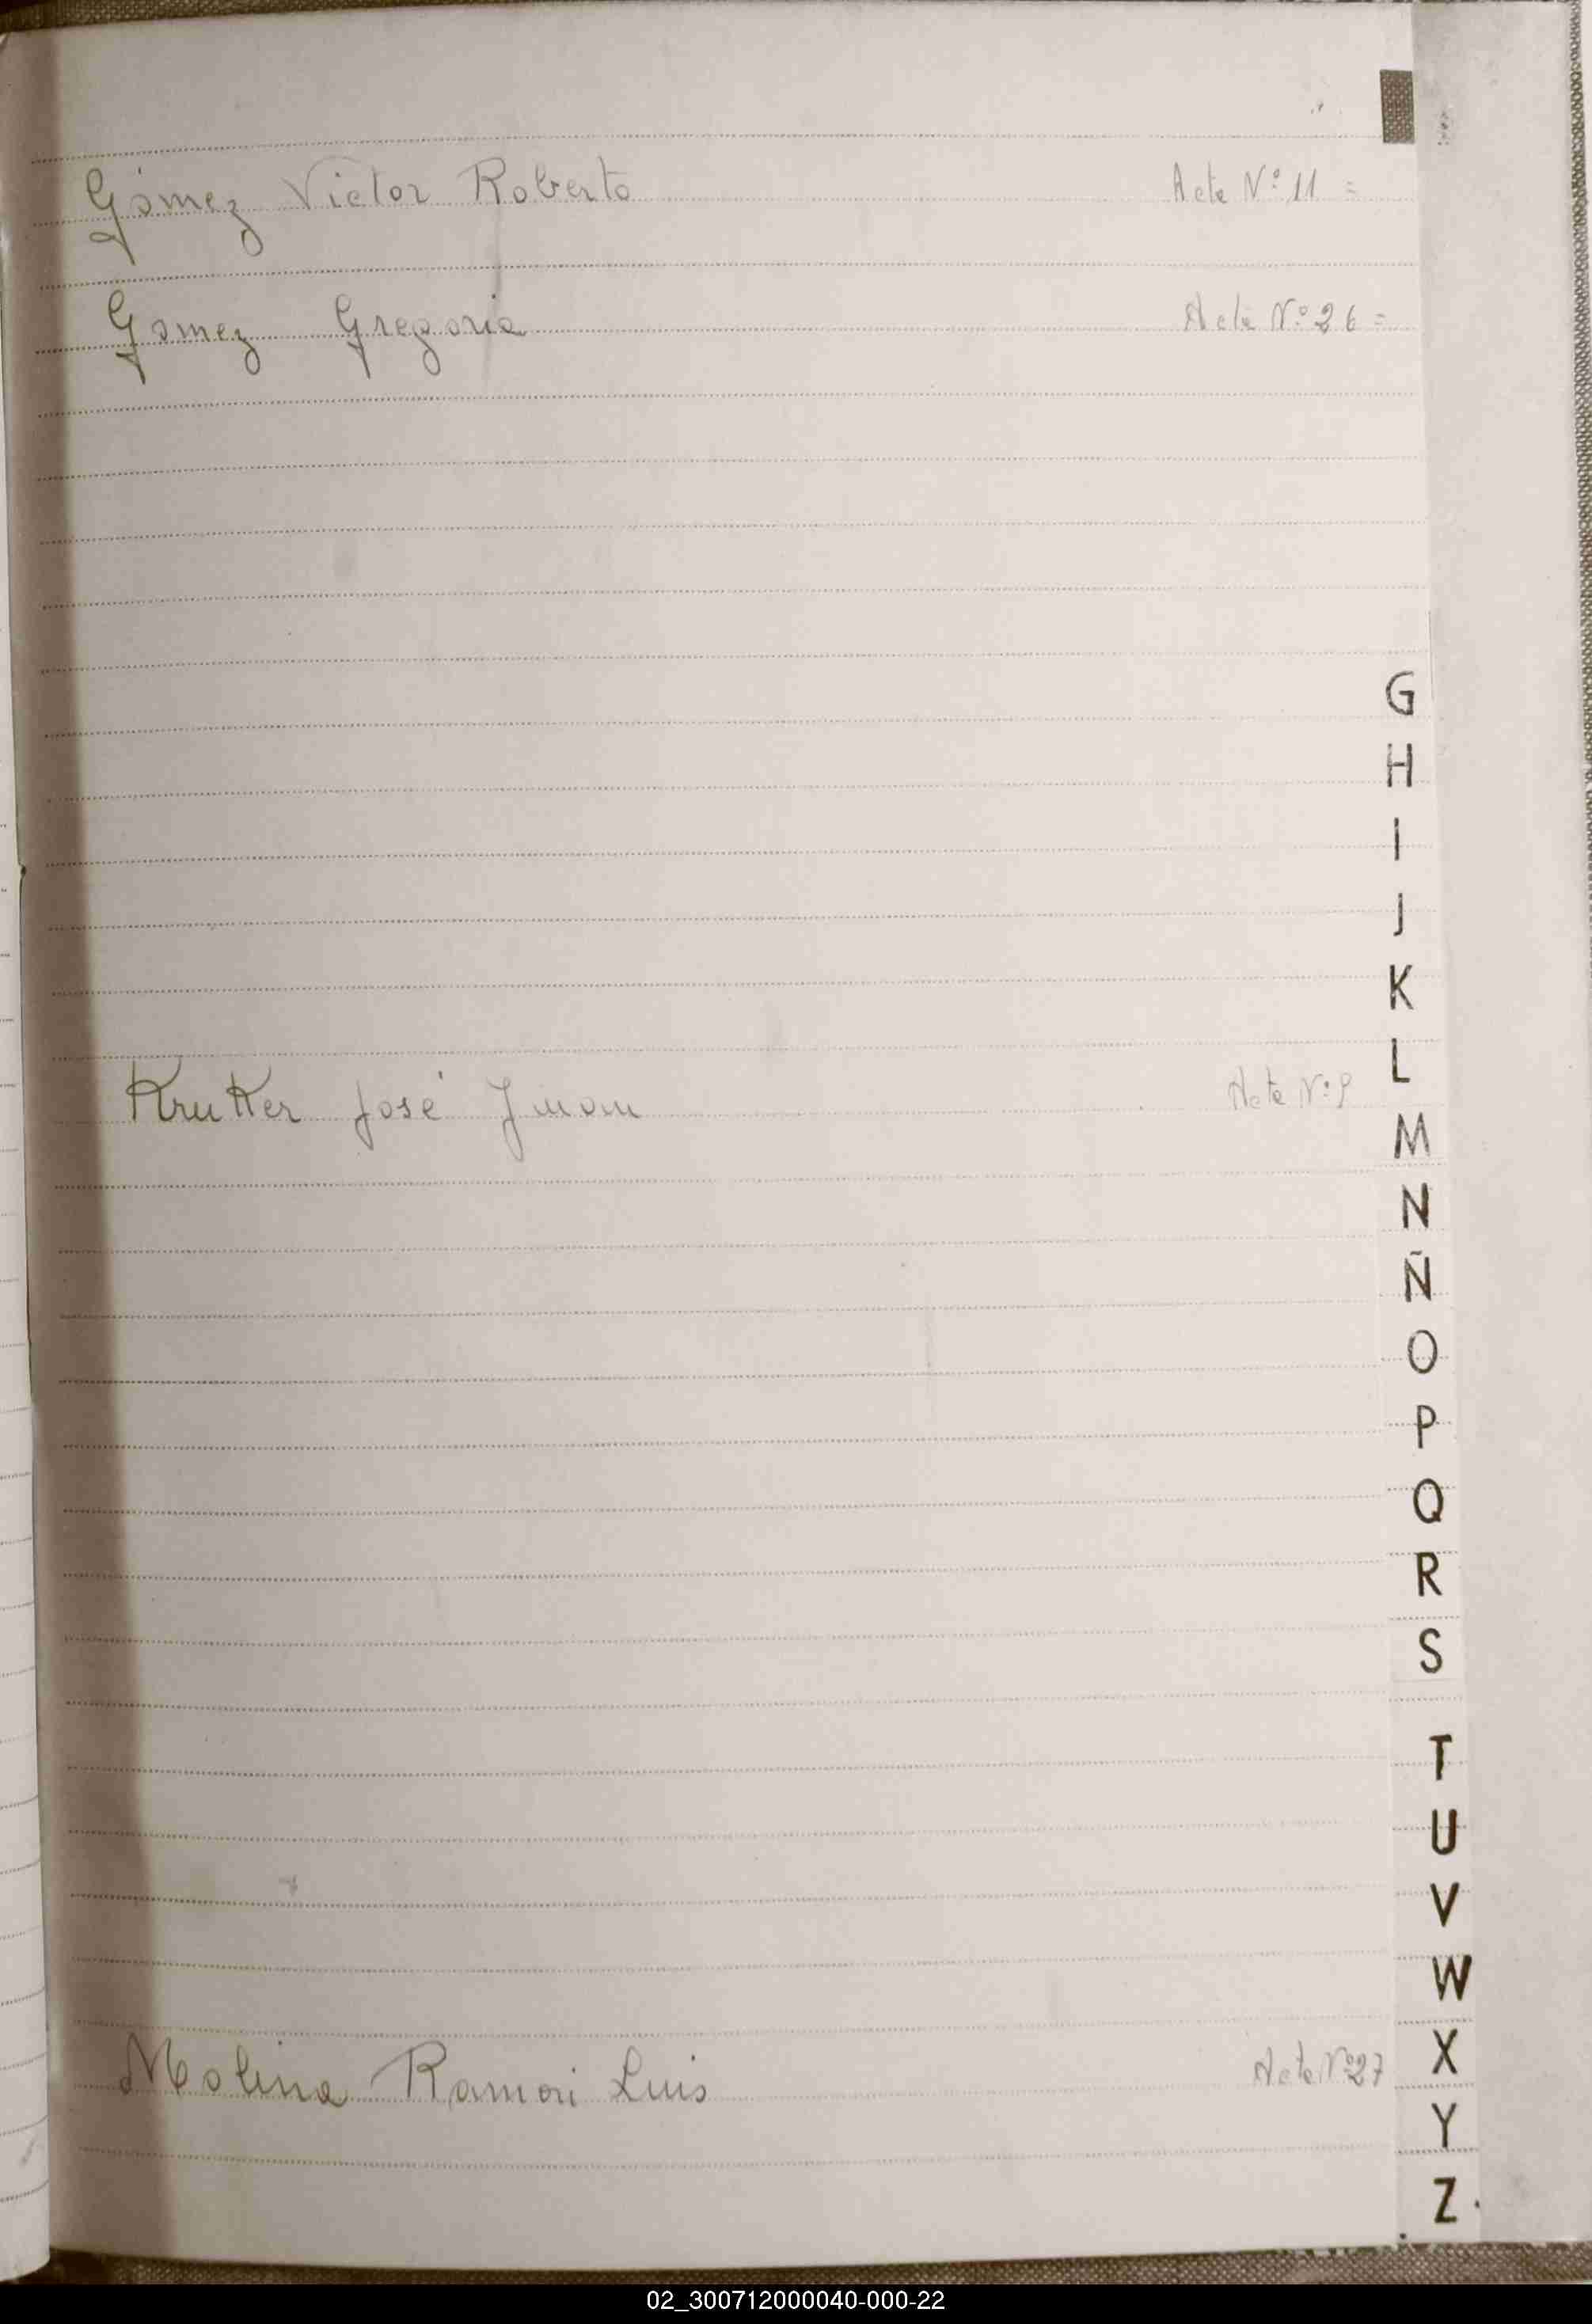 Gómez Victor Roberto Acta Nº 11 =
Gomez Gregoria Acta Nº 26 =
G
H
I
J
K
L
Kruker José Juan Acta Nº 9
M
N
Ñ
O
P
Q
R
S
T
U
V
W
X
Molina Ramón Luis Acta Nº 27
Y
Z
02_300712000040-000-22